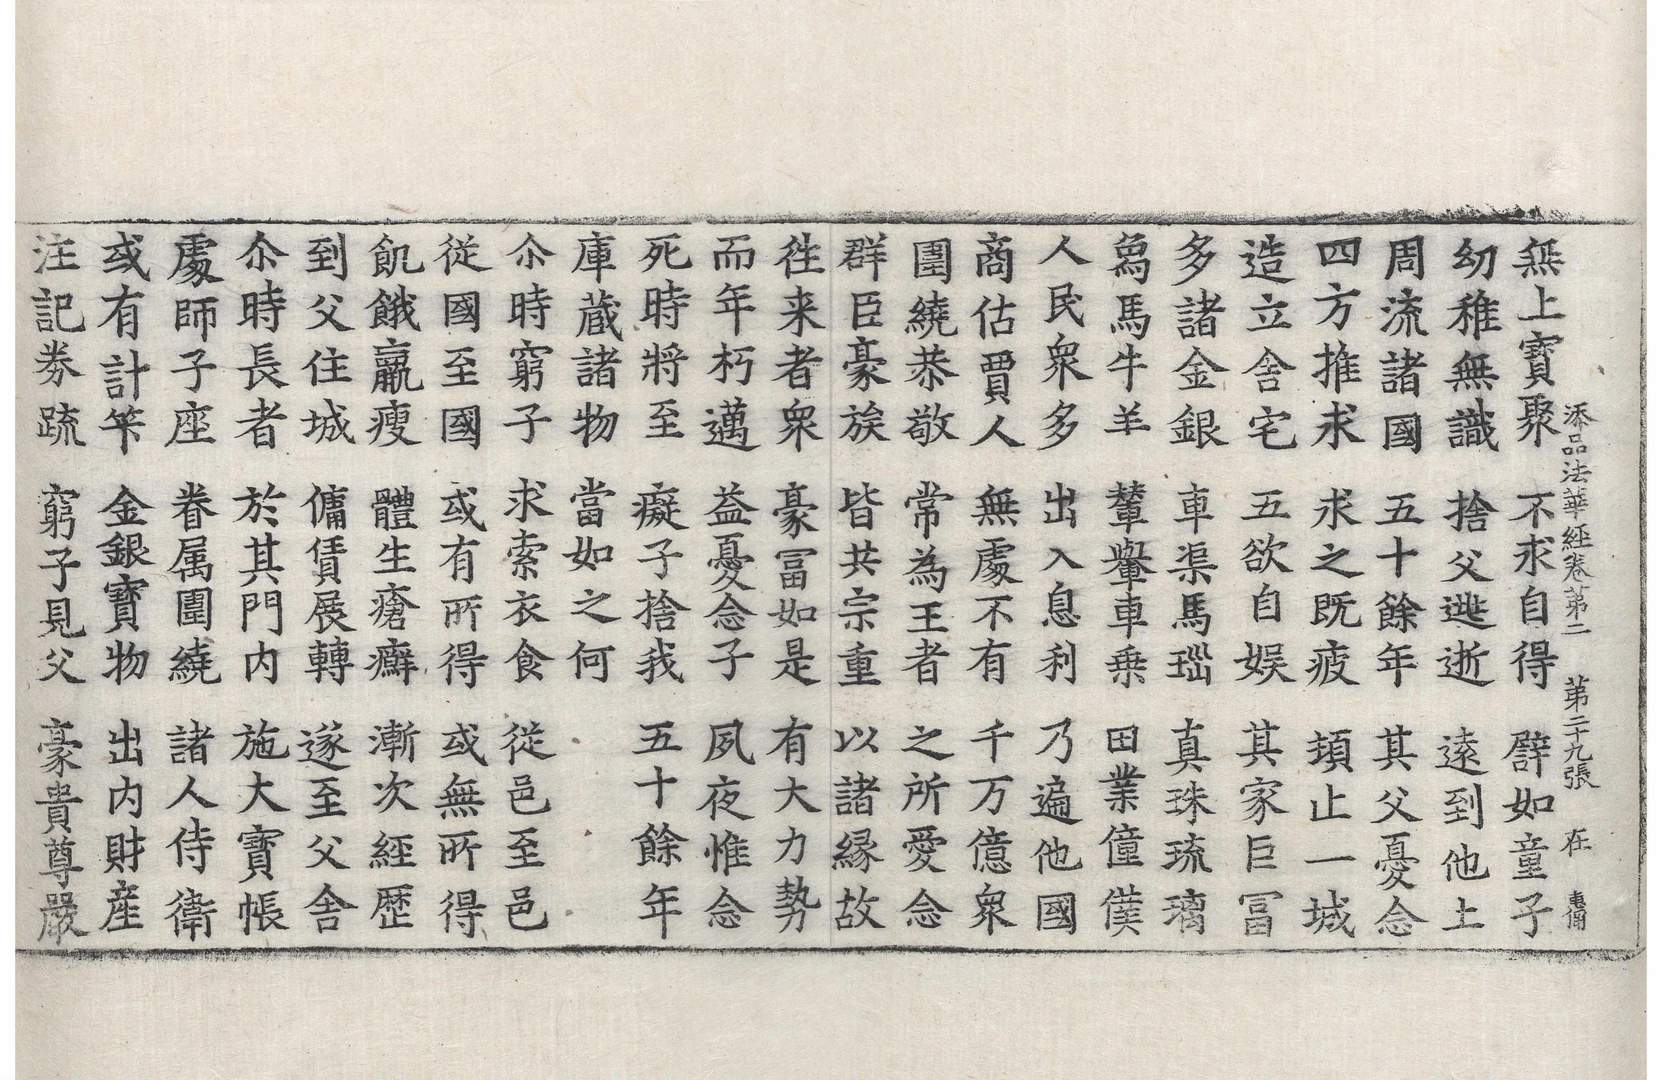 添品法華經卷第二 第二十九張 在
無上寶聚 不求自得 譬如童子
幼稚無識 捨父逃逝 遠到他土
周流諸國 五十餘年 其父憂念
四方推求 求之既疲 頓止一城
造立舍宅 五欲自娛 其家巨冨
多諸金銀 車渠馬瑙 真珠琉璃
烏馬牛羊 輦轝車乗 田業僮僕
人民衆多 出入息利 乃遍他國
商估賈人 無處不有 千万億衆
圍繞恭敬 常為王者 之所愛念
群臣豪族 皆共宗重 以諸縁故
徃来者衆 豪冨如是 有大力勢
而年朽邁 益憂念子 夙夜惟念
死時將至 癡子捨我 五十餘年
庫蔵諸物 當如之何
尒時窮子 求索衣食 従邑至邑
従國至國 或有所得 或無所得
飢餓羸瘦 體生瘡癬 漸次經歷
到父住城 傭賃展轉 遂至父舍
尒時長者 於其門内 施大寶帳
處師子座 眷属圍繞 諸人侍衛
或有計筭 金銀寶物 出内財産
注記券疏 窮子見父 豪貴尊嚴